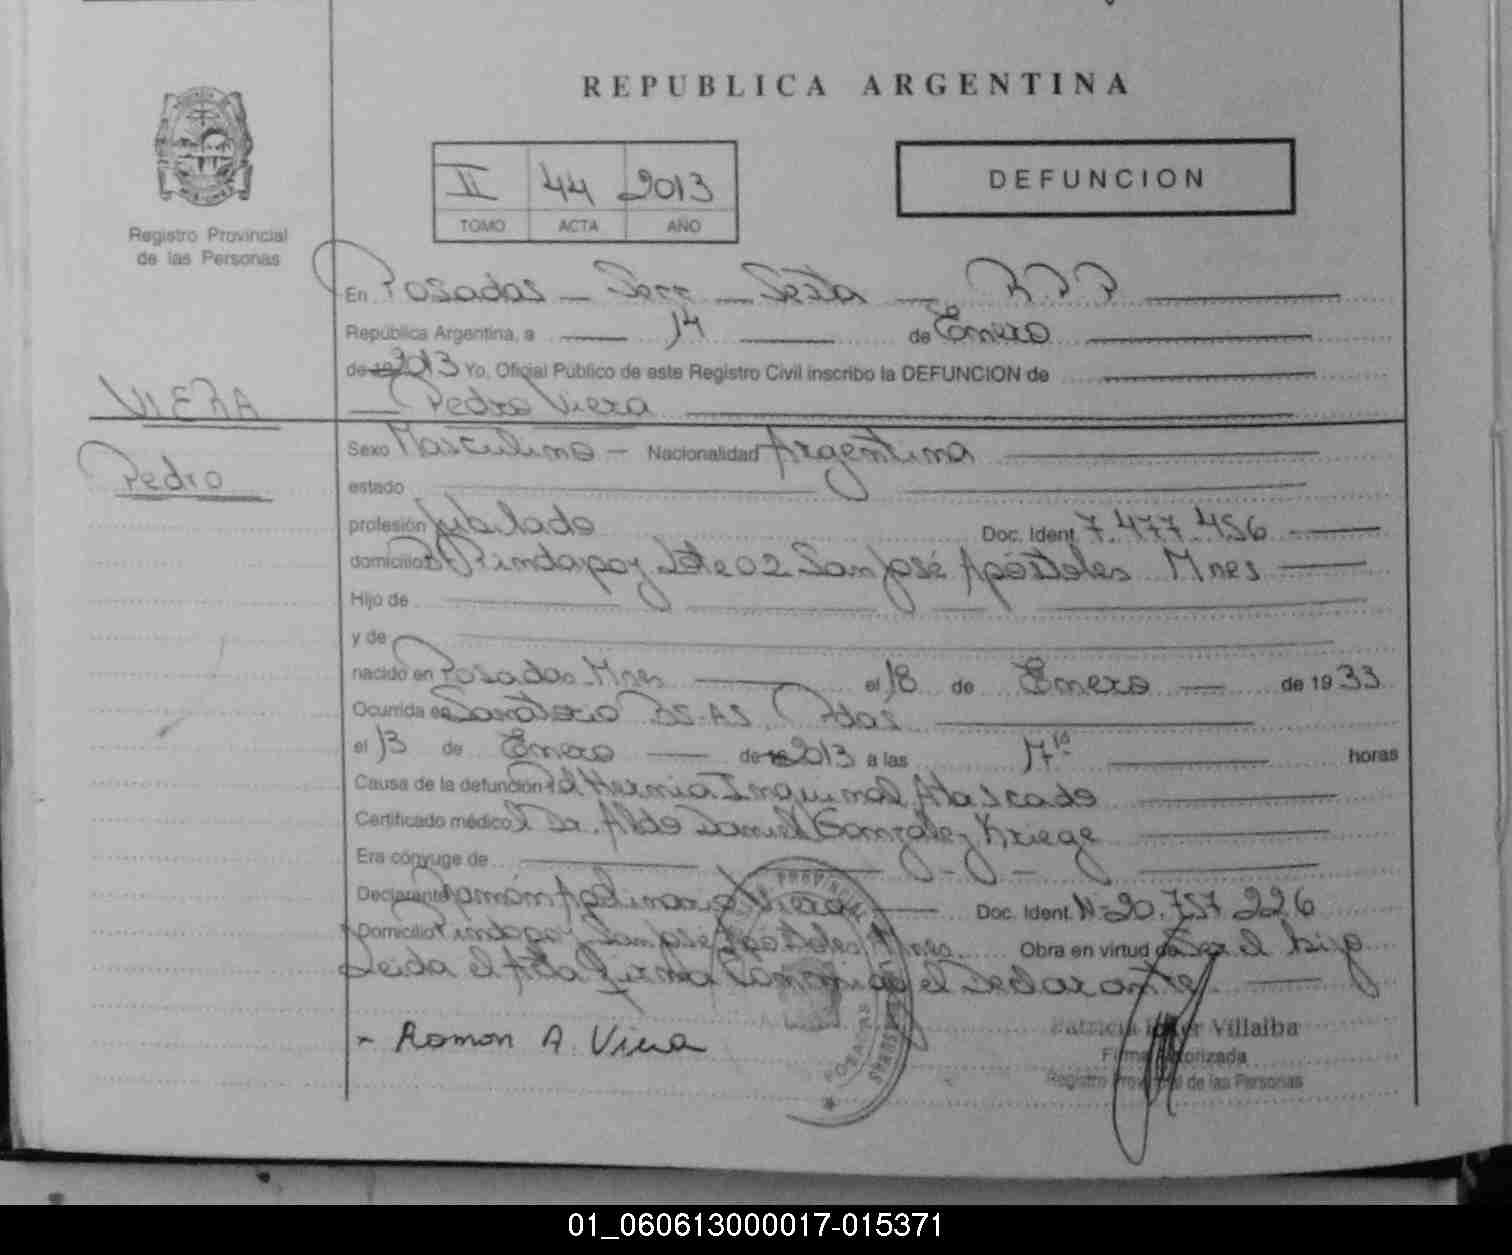 REPUBLICA ARGENTINA
II 44 2013
TOMO ACTA AÑO
DEFUNCION
Registro Provincial
de las Personas
En Posadas Secc Sexta R.P.P
República Argentina, a 14 de Enero
de 19 2013 Yo, Oficial Público de este Registro Civil inscribo la DEFUNCION de
Pedro Viera
VIERA
Pedro
Sexo Masculino - Nacionalidad Argentina
estado
profesión Jubilado Doc. Ident. 7.477.456
domicilio Bº Pindapoy Lote 02 San José Apóstoles Mnes
Hijo de
y de
nacido en Posadas Mnes el 18 de Enero de 1933
Ocurrida en Sanatorio BS-AS Pdas
el 13 de Enero de 19 2013 a las horas
Causa de la defunción Hernia Inguinal Atascado
Certificado médico Dr. Aldo Daniel Gonzalez Kriege
Era cónyuge de
Declarante Ramón Apolinario Viera Doc. Ident. Nº 20.757.226
Domicilio Pindapoy San José Apóstoles Mnes. Obra en virtud de Ser el hijo
Leida el Acta Firma Conmigo el Declarante
- Ramon A. Viera
Patricia Villalba
Firma Autorizada
Registro Provincial de las Personas
POSADAS
01_060613000017-015371